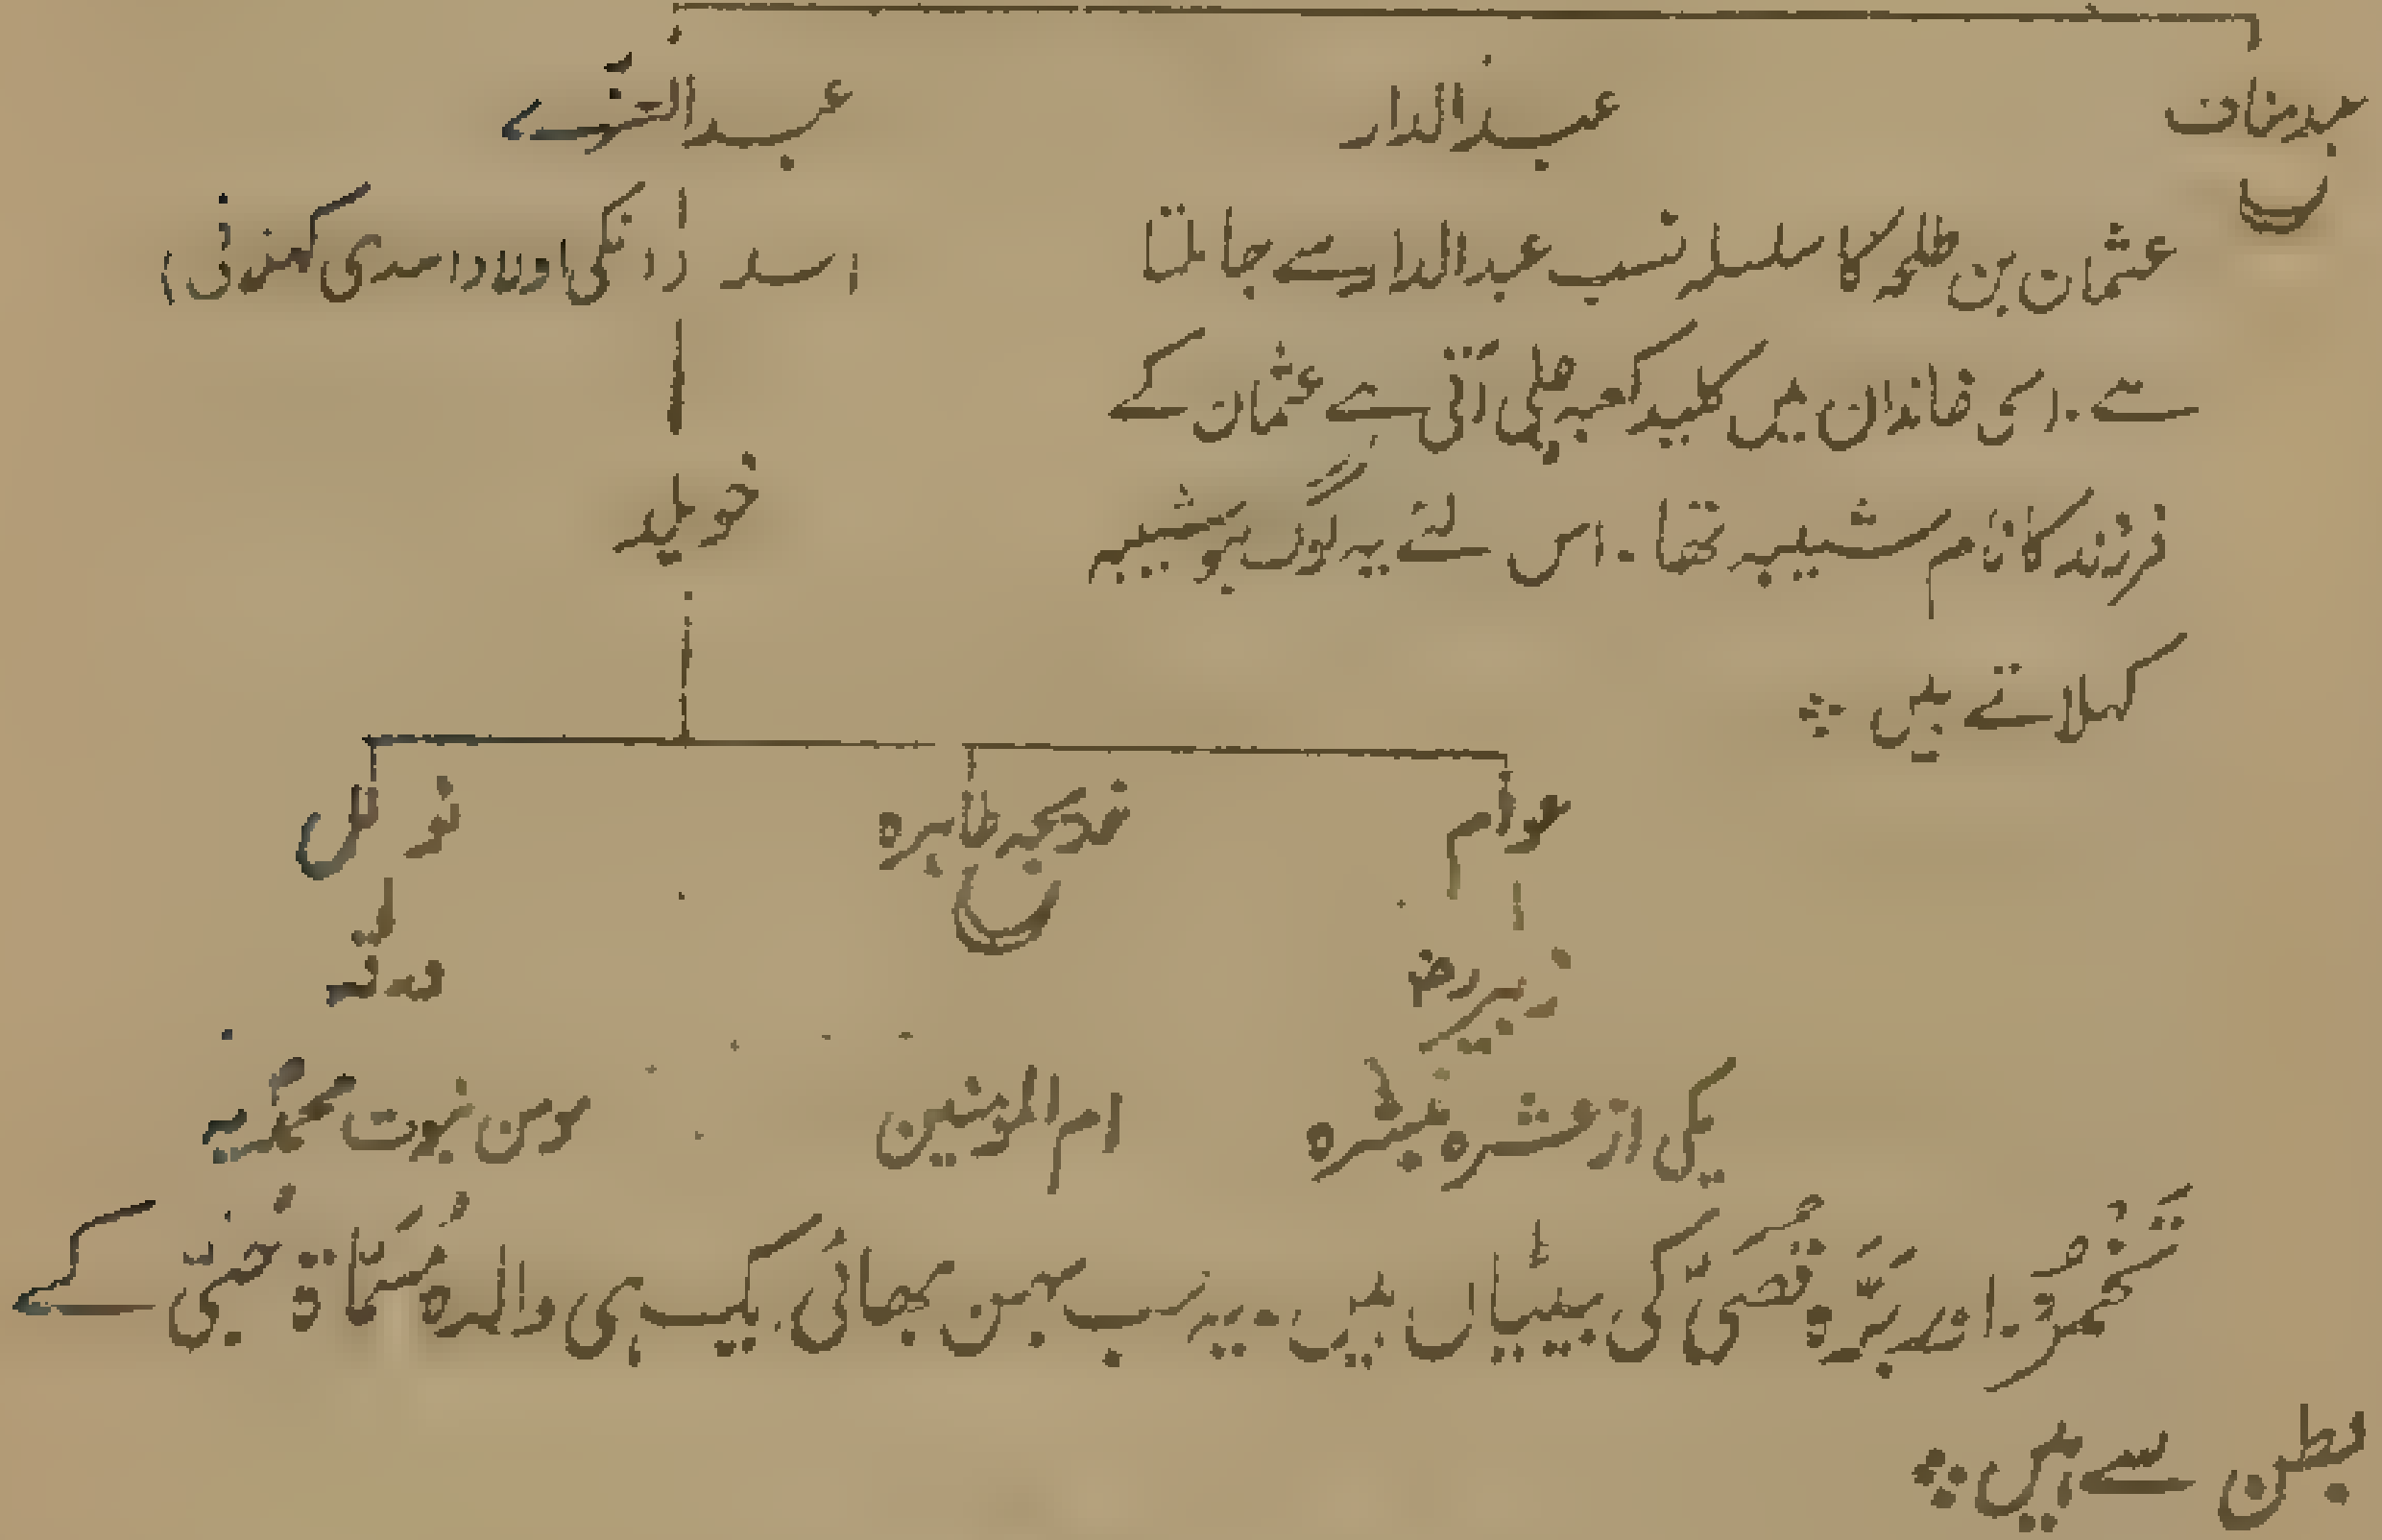 عبدمناف عبدالدار عبدالعزّے
عثمان بن طلحہ کا سلسلہ نسب عبدالدار سے جا ملتا
ہے۔ اسی خاندان میں کلید کعبہ چلی آتی ہے عثمان کے
فرزند کا نام شیبہ تھا۔ اس لئے یہ لوگ بنوشیبہ
کہلاتے ہیں
اسد (انکی اولاد اسدی کہلائی)
خویلد
عوام خدیجہ طاہرہ نوفل
زبیر رض ورقہ
یکی از عشرہ مبشرہ ام المومنین مومن نبوت محمدیہ
تَخْمُرْ۔ اور بَرَّہ قُصَیّ کی بیٹیاں ہیں۔ یہ سب بہن بھائی ایک ہی والدہ مُسَمَّاۃ حُبّٰی کے
بطن سے ہیں